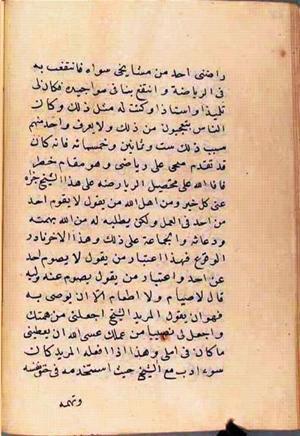 راضنى احد من مشايخى سواه فانتفعت به
فى الرياضة و انتفع بنا فى مواجيده فكان لى
تلميذا واستاذا وكنت له مثل ذلك وكان
الناس يتعجبون من ذلك ولا يعرف واحد منهم
سبب ذلك ست وثمانين وخمسمائة فانه كان
قد تقدم فتحى على رياضتى وهو مقام خطر
فافاء الله على بتحصيل الرياضة على هذا الشيخ جزاه
عنى كل خير ومن اهل الله من يقول لا يقوم احد
من احد فى العمل ولكن يطلبه له من الله بهمته
ودعائه والجماعة على ذلك وهذا الاخر نادر
الوقوع فهذا اعتبار من يقول لا يصوم احد
عن احد واعتبار من يقول يصوم عنه وليه
قال لا صيام ولا اطعام الا ان يوصى به
فهو ان يقول المريد الشيخ اجعلنى من همتك
واجعل لى نصيبا من عملك عسى الله ان يعطينى
ما كان فى املى وهذا اذا فعله المريد كان
سوء ادب مع الشيخ حيث استخدمه فى حق نفسه
وتهمه